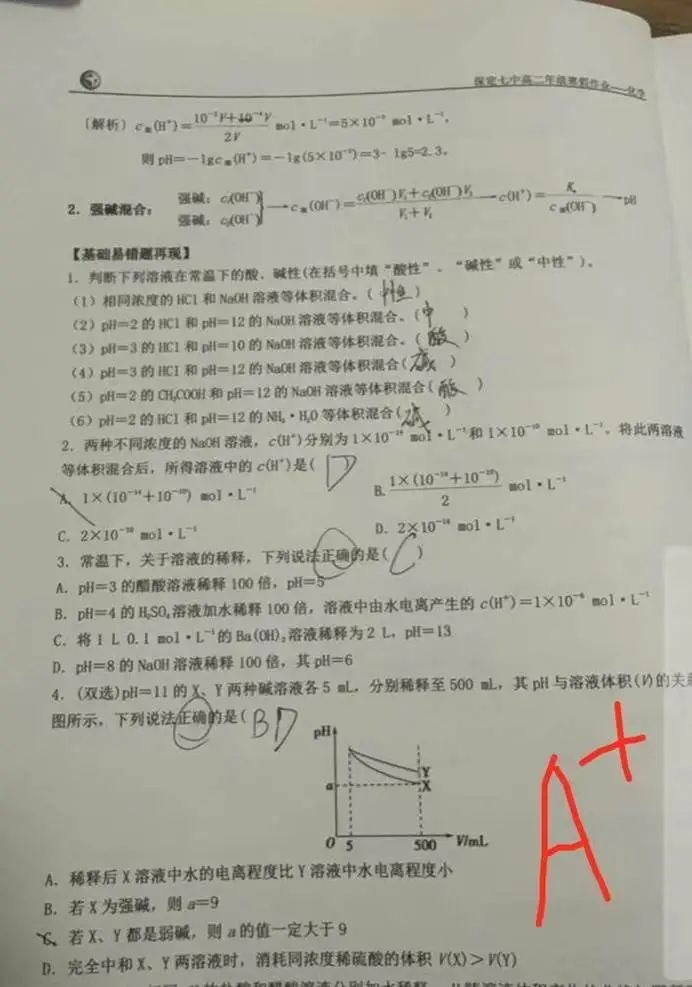 保定七中高二年级寒假作业——化学
(解析) c混(H⁺)=(10⁻²V+10⁻⁴V)/2V mol·L⁻¹=5×10⁻³ mol·L⁻¹,
则 pH=-lgc混(H⁺)=-lg(5×10⁻³)=3-lg5=2.3。
2. 强碱混合:
强碱: c₁(OH⁻)
强碱: c₂(OH⁻)
}→c混(OH⁻)=(c₁(OH⁻)V₁+c₂(OH⁻)V₂)/(V₁+V₂)→c(H⁺)=Kw/c混(OH⁻)→pH
【基础易错题再现】
1. 判断下列溶液在常温下的酸、碱性(在括号中填“酸性”、“碱性”或“中性”)。
(1) 相同浓度的 HCl 和 NaOH 溶液等体积混合。( 中性 )
(2) pH=2 的 HCl 和 pH=12 的 NaOH 溶液等体积混合。( 中 )
(3) pH=3 的 HCl 和 pH=10 的 NaOH 溶液等体积混合。( 酸 )
(4) pH=3 的 HCl 和 pH=12 的 NaOH 溶液等体积混合( 碱 )
(5) pH=2 的 CH₃COOH 和 pH=12 的 NaOH 溶液等体积混合( 酸 )
(6) pH=2 的 HCl 和 pH=12 的 NH₃·H₂O 等体积混合( 碱 )
2. 两种不同浓度的 NaOH 溶液, c(H⁺)分别为 1×10⁻¹⁴ mol·L⁻¹和 1×10⁻¹⁰ mol·L⁻¹。将此两溶液
等体积混合后, 所得溶液中的 c(H⁺)是( D )
A. 1×(10⁻¹⁴+10⁻¹⁰) mol·L⁻¹
B. 1×(10⁻¹⁴+10⁻¹⁰)/2 mol·L⁻¹
C. 2×10⁻¹⁰ mol·L⁻¹
D. 2×10⁻¹⁴ mol·L⁻¹
3. 常温下, 关于溶液的稀释, 下列说法正确的是( C )
A. pH=3 的醋酸溶液稀释 100 倍, pH=5
B. pH=4 的 H₂SO₄溶液加水稀释 100 倍, 溶液中由水电离产生的 c(H⁺)=1×10⁻⁶ mol·L⁻¹
C. 将 1 L 0.1 mol·L⁻¹的 Ba(OH)₂溶液稀释为 2 L, pH=13
D. pH=8 的 NaOH 溶液稀释 100 倍, 其 pH=6
4. (双选)pH=11 的 X、Y 两种碱溶液各 5 mL, 分别稀释至 500 mL, 其 pH 与溶液体积(V)的关
图所示, 下列说法正确的是( BD
pH
Y
a
X
0 5 500 V/mL
A+
A. 稀释后 X 溶液中水的电离程度比 Y 溶液中水电离程度小
B. 若 X 为强碱, 则 a=9
C. 若 X、Y 都是弱碱, 则 a 的值一定大于 9
D. 完全中和 X、Y 两溶液时, 消耗同浓度稀硫酸的体积 V(X)>V(Y)